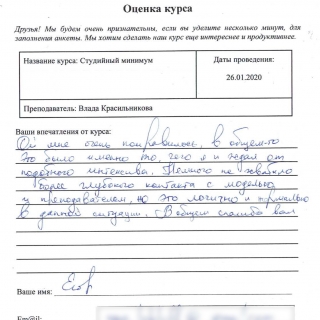 Оценка курса
Друзья! Мы будем очень признательны, если вы уделите несколько минут, для
заполнения анкеты. Мы хотим сделать наш курс еще интереснее и продуктивнее.
Название курса: Студийный минимум
Даты проведения:
26.01.2020
Преподаватель: Влада Красильникова
Ваши впечатления от курса:
мне очень понравилось, в общем-то
это было именно то, чего я и ждал от
подобного интенсива. Немного не хватило
более глубокого контакта с моделью
и преподавателем, но это логично и нормально
в данной ситуации. В общем спасибо вам
Ваше имя: Егор
Em@il: